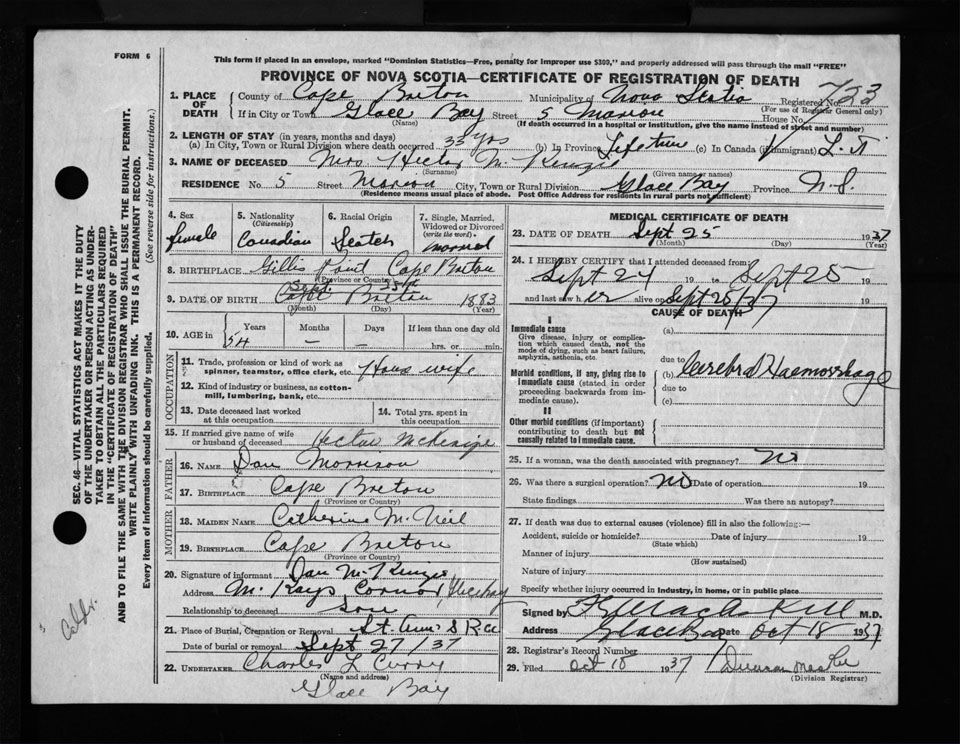 FORM 6
This form if placed in an envelope, marked "Dominion Statistics—Free, penalty for improper use $300," and properly addressed will pass through the mail "FREE"
PROVINCE OF NOVA SCOTIA—CERTIFICATE OF REGISTRATION OF DEATH
1. PLACE OF DEATH County of Cape Breton Municipality of Nova Scotia Registered No. 723
(For use of Registrar General only)
If in City or Town Glace Bay Street 5 Marion House No.
(Name) (If death occurred in a hospital or institution, give the name instead of street and number)
2. LENGTH OF STAY (in years, months and days)
(a) In City, Town or Rural Division where death occurred 33 yrs (b) In Province Lifetime (c) In Canada (if immigrant) L.T
3. NAME OF DECEASED Mrs. Hector McKenzie
(Surname) (Given name or names)
RESIDENCE No. 5 Street Marion City, Town or Rural Division Glace Bay Province N.S.
(Residence means usual place of abode. Post Office Address for residents in rural parts not sufficient)
4. Sex female
5. Nationality (Citizenship) Canadian
6. Racial Origin Scotch
7. Single, Married, Widowed or Divorced (write the word) married
8. BIRTHPLACE Gillis Point Cape Breton
(Province or Country)
9. DATE OF BIRTH Cape Breton 1883
(Month) (Day) (Year)
10. AGE in Years Months Days If less than one day old
54 – – hrs. or min.
OCCUPATION
11. Trade, profession or kind of work as spinner, teamster, office clerk, etc. Hous wife
12. Kind of industry or business, as cotton-mill, lumbering, bank, etc.
13. Date deceased last worked at this occupation
14. Total yrs. spent in this occupation
15. If married give name of wife or husband of deceased Hector McKenzie
FATHER
16. NAME Dan Morrison
17. BIRTHPLACE Cape Breton
(Province or Country)
MOTHER
18. MAIDEN NAME Catherine McNeil
19. BIRTHPLACE Cape Breton
(Province or Country)
20. Signature of informant Dan McKenzie
Address McKays Corner Glace Bay
Relationship to deceased Son
21. Place of Burial, Cremation or Removal St. Anns R.C.
Date of burial or removal Sept 27/37
22. UNDERTAKER Charles L Curry
(Name and address)
Glace Bay
MEDICAL CERTIFICATE OF DEATH
23. DATE OF DEATH Sept 25 1937
(Month) (Day) (Year)
24. I HEREBY CERTIFY that I attended deceased from
Sept 24 19 to Sept 25 19
and last saw her alive on Sept 25/37 19
CAUSE OF DEATH
I
Immediate cause (a)
Give disease, injury or complication which caused death, not the mode of dying, such as heart failure, asphyxia, asthenia, etc.
due to
Morbid conditions, if any, giving rise to immediate cause (stated in order proceeding backwards from immediate cause).
(b) Cerebral Haemorrhage
due to
(c)
II
Other morbid conditions (if important) contributing to death but not causally related to immediate cause.
25. If a woman, was the death associated with pregnancy? No
26. Was there a surgical operation? No Date of operation 19
State findings Was there an autopsy?
27. If death was due to external causes (violence) fill in also the following:—
Accident, suicide or homicide? Date of injury 19
(State which)
Manner of injury
(How sustained)
Nature of injury
Specify whether injury occurred in industry, in home, or in public place
Signed by M.D.
Address Glace Bay Date Oct 18 1937
28. Registrar's Record Number
29. Filed Oct 18 1937
(Division Registrar)
SEC. 46—VITAL STATISTICS ACT MAKES IT THE DUTY
OF THE UNDERTAKER OR PERSON ACTING AS UNDER-
TAKER TO OBTAIN ALL THE PARTICULARS REQUIRED
IN THE "CERTIFICATE OF REGISTRATION OF DEATH"
AND TO FILE THE SAME WITH THE DIVISION REGISTRAR WHO SHALL ISSUE THE BURIAL PERMIT.
WRITE PLAINLY WITH UNFADING INK. THIS IS A PERMANENT RECORD.
Every item of information should be carefully supplied. (See reverse side for instructions.)